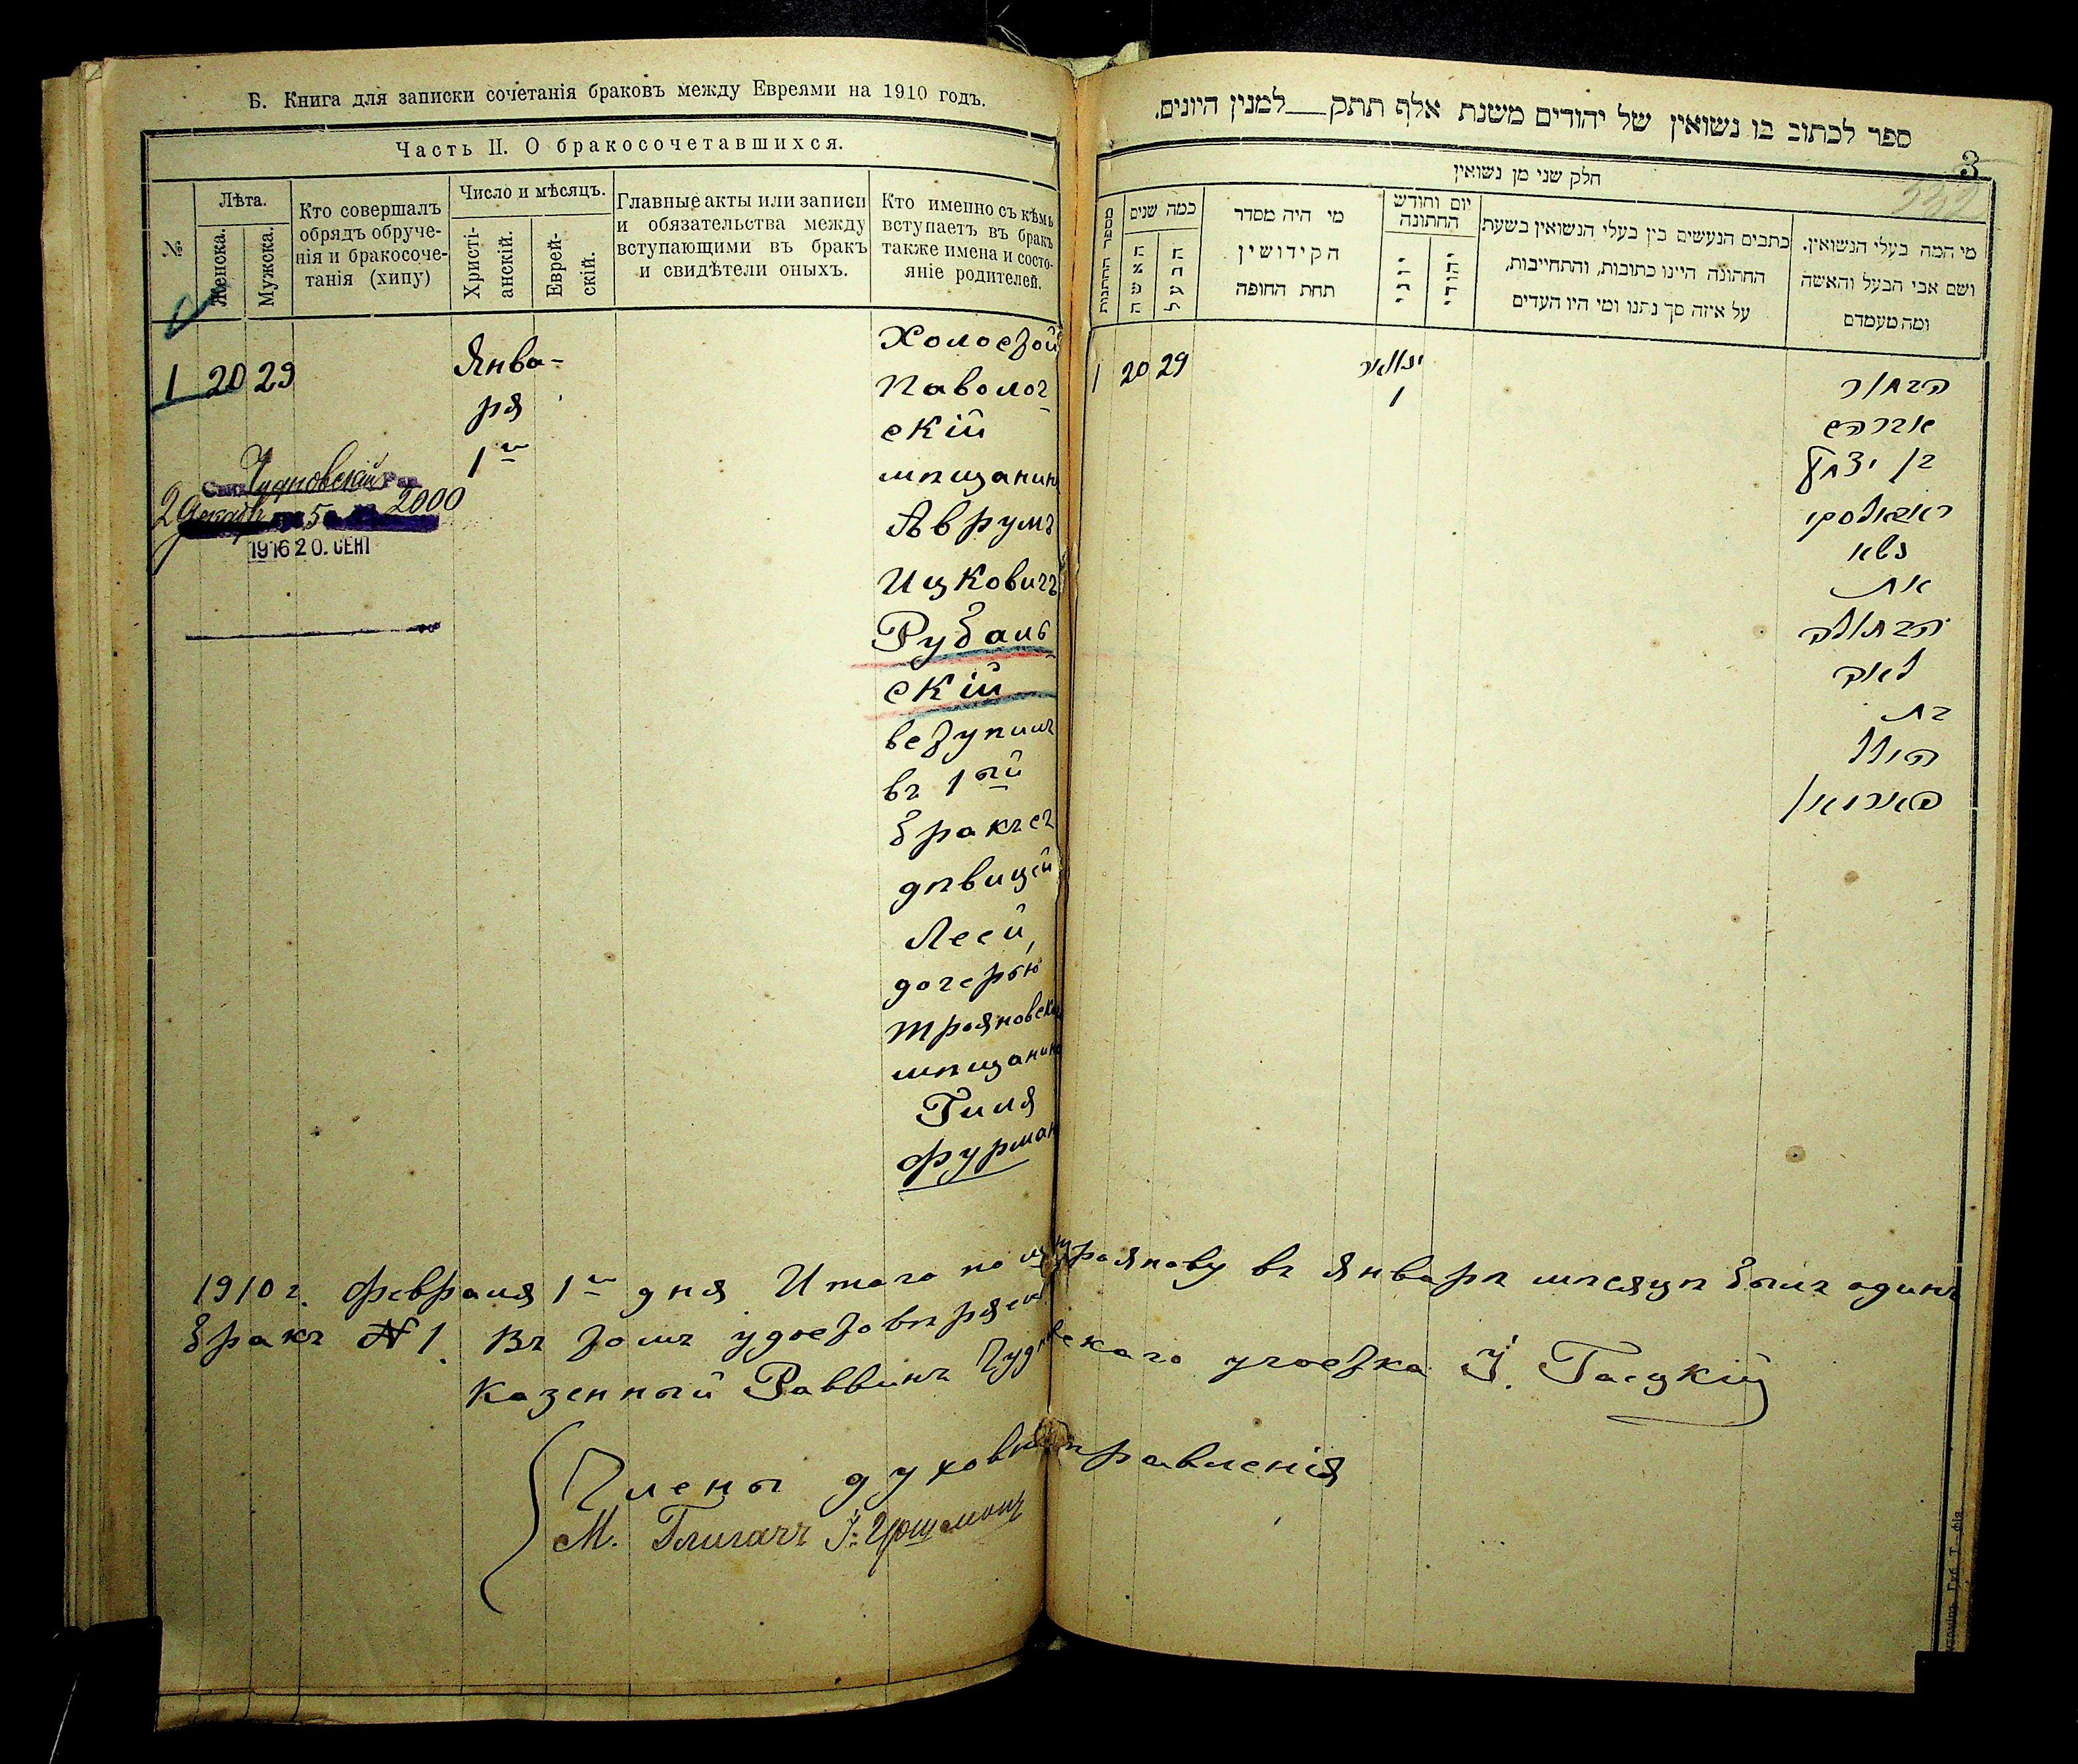 Б. Книга для записки сочетанія браковъ между Евреями на 1910 годъ.
Часть II. О бракосочетавшихся.
№
Лѣта.
Женска.
Мужска.
Кто совершалъ
обрядъ обруче-
нія и бракосоче-
танія (хипу)
Число и мѣсяцъ.
Христі-
анскій.
Еврей-
скій.
Главные акты или записи
и обязательства между
вступающими въ бракъ
и свидѣтели оныхъ.
Кто именно съ кѣмъ
вступаетъ въ бракъ
также имена и состо-
яніе родителей.
1 20 29
Янва-
ря
1го
Холостой
Паволоч-
скій
мѣщанинъ
Аврумъ
Ицковичъ
Рубаль-
скій
вступилъ
въ 1ый
бракъ съ
дѣвицей
Леей,
дочерью
трояновск
мѣщанина
Гиля
Фурман
Чудновскій Рав.
2000
1916 20. СЕН
1910 г. Февраля 1го дня. Итого по м. Троянову въ Январѣ мѣсяцѣ былъ одинъ
бракъ № 1. Въ томъ удостовѣряемъ
Казенный Раввинъ Чудновскаго участка І. Гасцкій
Члены духовн правленія
М.
ספר לכתוב בו נשואין של יהודים משנת אלף תתק___למנין היונים.
3
532
חלק שני מן נשואין
מספר החתונות
כמה שנים
האשה
הבעל
מי היה מסדר
הקידושין
תחת החופה
יום וחודש
החתונה
יוני
יהודי
כתבים הנעשים בין בעלי הנשואין בשעת
החתונה היינו כתובות, והתחייבות,
על איזה סך נתנו ומי היו העדים
מי המה בעלי הנשואין.
ושם אבי הבעל והאשה
ומה מעמדם
1 20 29
ינואר
1
הבחור
אברהם
בן יצחק
נשא
את
הבתולה
לאה
בת
הילל
פארמאן